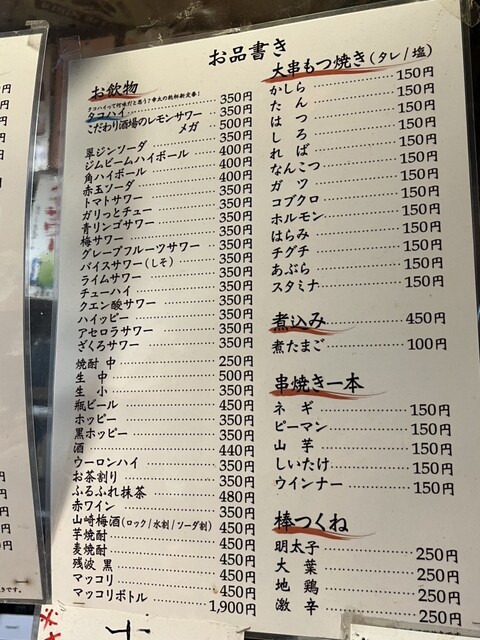 お品書き
お飲物
タコハイって何味だと思う?幸太の乾杯新定番!
タコハイ 350円
こだわり酒場のレモンサワー 350円
メガ 500円
翠ジンソーダ 350円
ジムビームハイボール 400円
角ハイボール 400円
赤玉ソーダ 400円
トマトサワー 350円
ガリっとチュー 350円
青リンゴサワー 350円
梅サワー 350円
グレープフルーツサワー 350円
バイスサワー(しそ) 350円
ライムサワー 350円
チューハイ 350円
クエン酸サワー 350円
ハイッピー 350円
アセロラサワー 350円
ざくろサワー 350円
焼酎 中 250円
生 中 500円
生 小 350円
瓶ビール 450円
ホッピー 350円
黒ホッピー 350円
酒 440円
ウーロンハイ 350円
お茶割り 350円
ふるふれ抹茶 480円
赤ワイン 350円
山崎梅酒(ロック/水割/ソーダ割) 450円
芋焼酎 450円
麦焼酎 450円
残波 黒 450円
マッコリ 450円
マッコリボトル 1,900円
大串もつ焼き(タレ/塩)
かしら 150円
たん 150円
はつ 150円
しろ 150円
れば 150円
なんこつ 150円
ガツ 150円
コブクロ 150円
ホルモン 150円
はらみ 150円
チグチ 150円
あぶら 150円
スタミナ 150円
煮込み 450円
煮たまご 100円
串焼き一本
ネギ 150円
ピーマン 150円
山芋 150円
しいたけ 150円
ウインナー 150円
棒つくね
明太子 250円
大葉 250円
地鶏 250円
激辛 250円